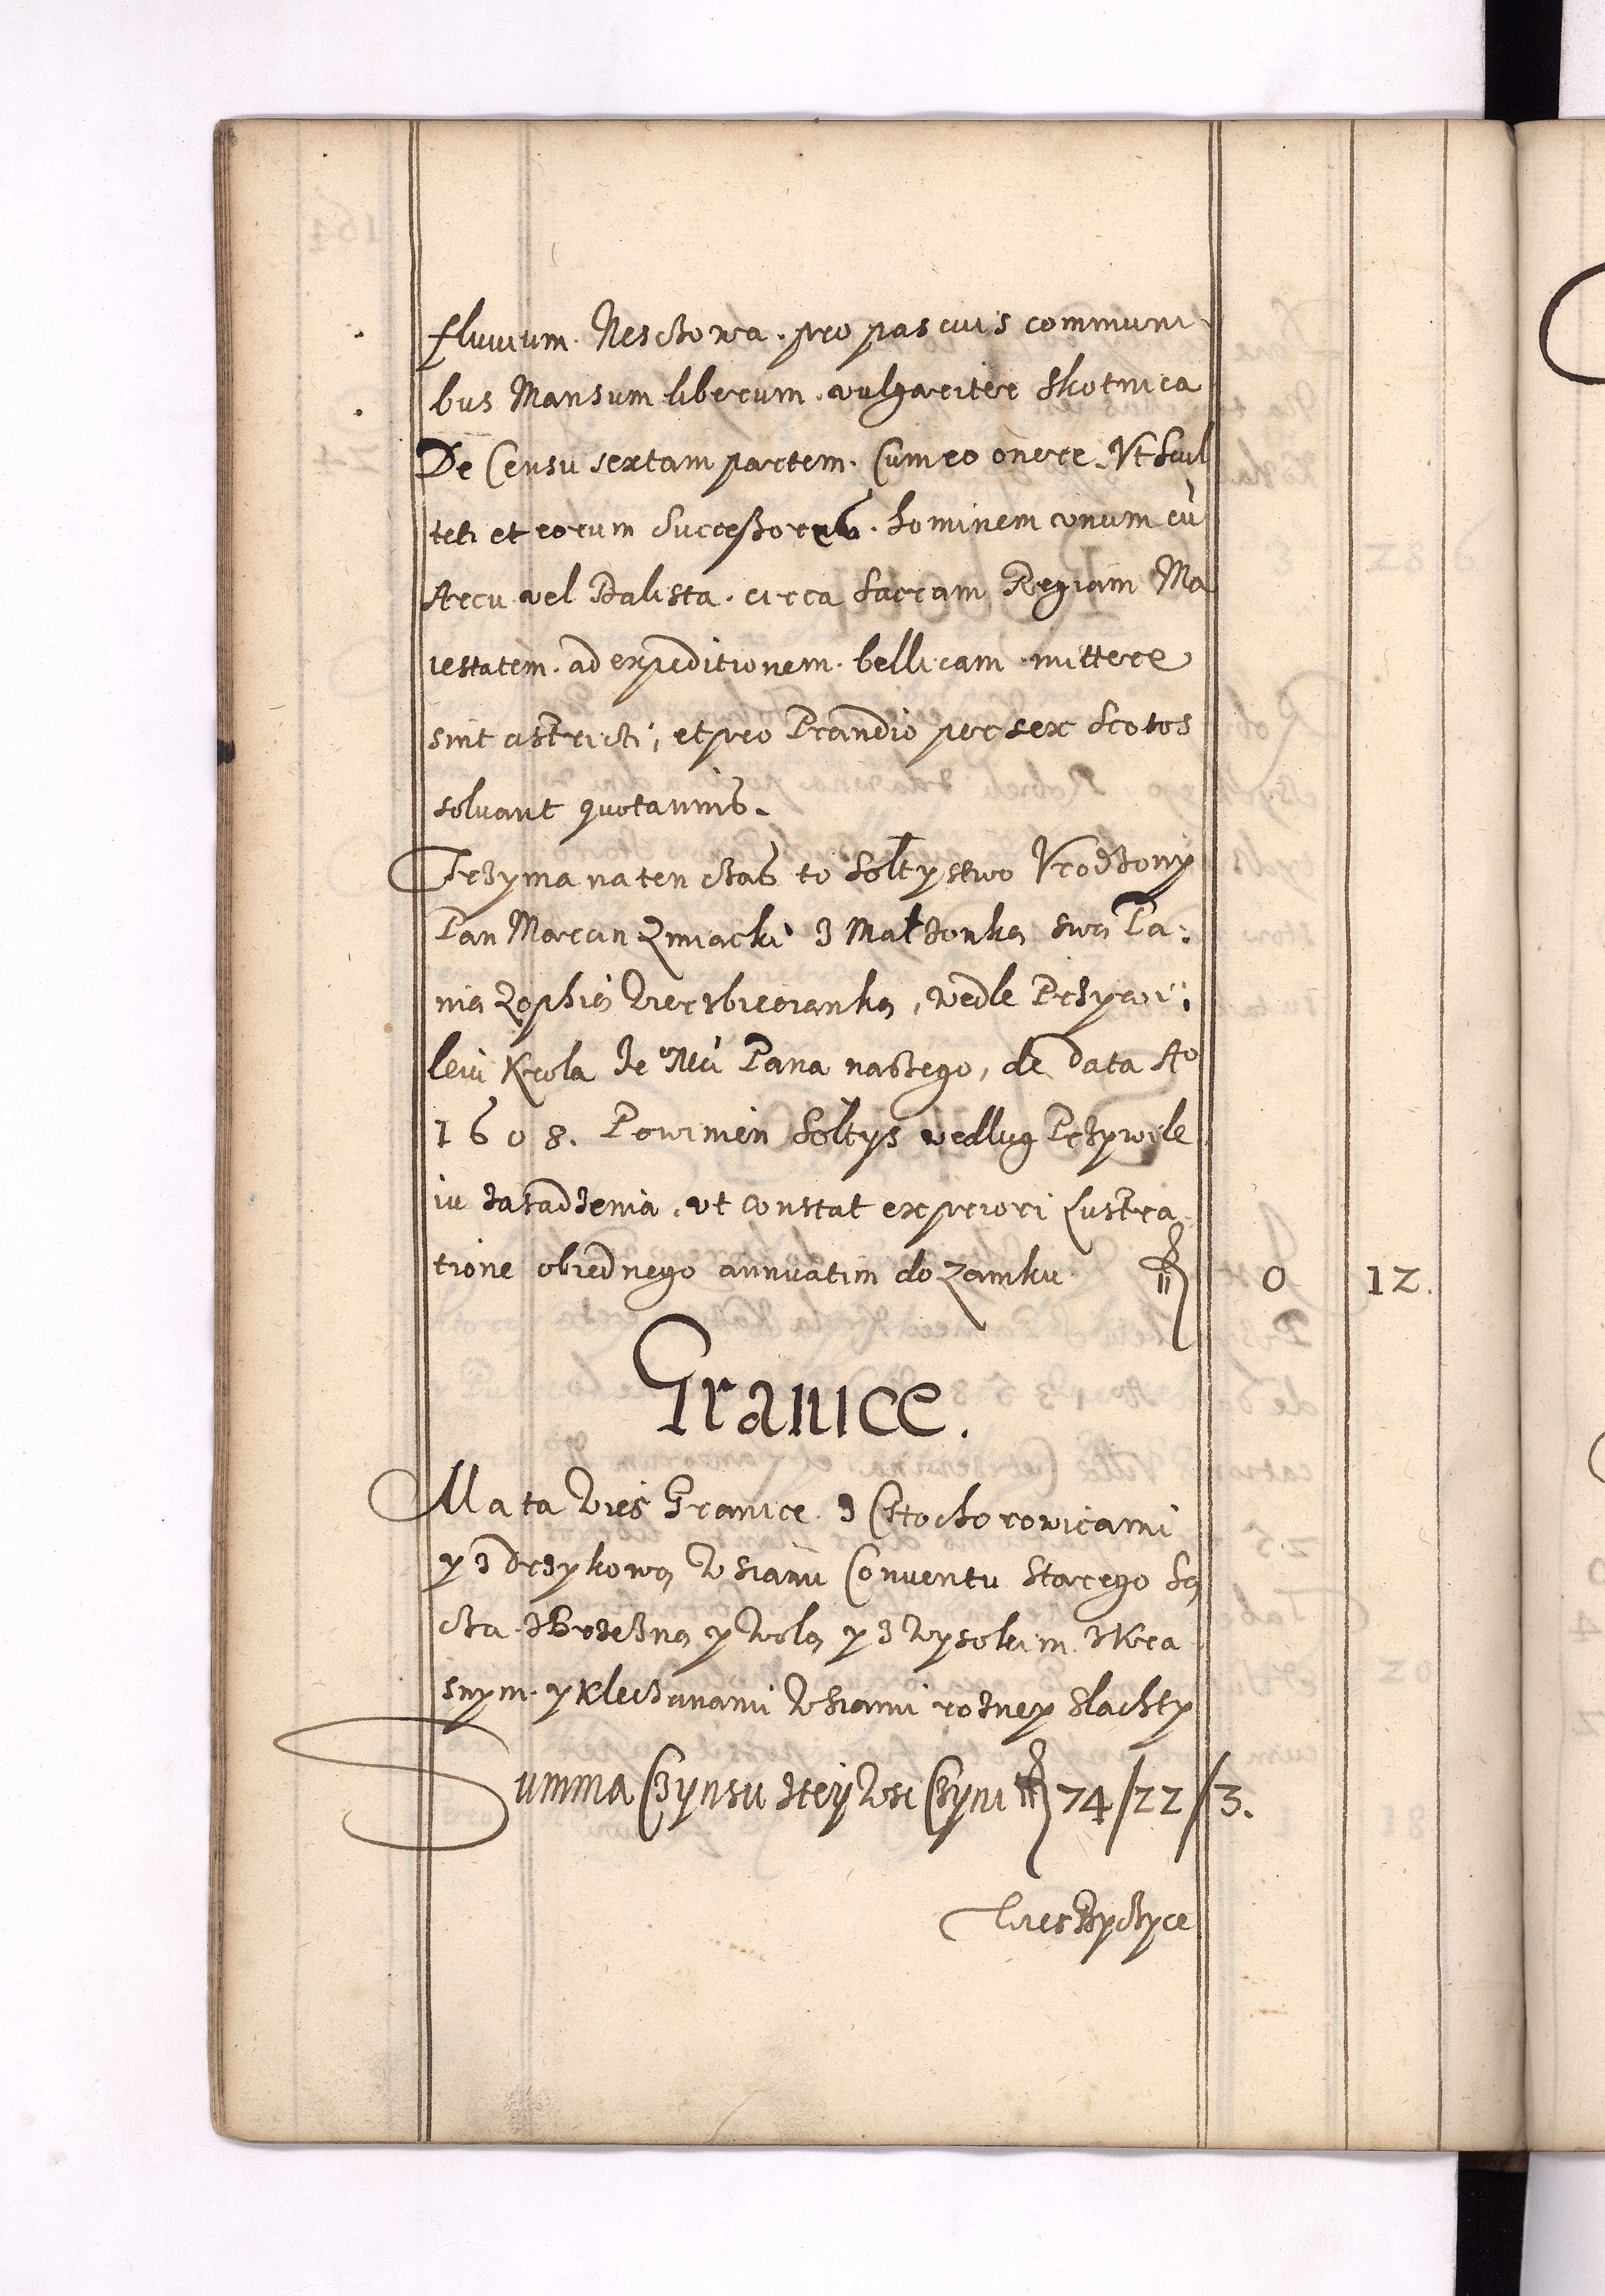 fluuium. Neschowa. pro pascuis communi
bus Mansum liberum. vulgariter Skotnica
De Censu sextam partem. Cum eo onere. Vt Scul
teti et eorum Successores. hominem vnum cu
Arcu vel Balista. circa Sacram Regiam Ma
iestatem. ad expeditionem. bellicam mittere
sint astricti; et pro Prandio per sex Scotos
soluant quotannis.
Trzyma na ten czas to Soltystwo Vrodzony
Pan Marcin Zmiacki z Małzonką swą Pa:
nią Zophią Wierzbięcianką, wedle Przywi:
leiu Krola Je Mci Pana naszego, de data Ao
1608. Powinien Soltys wedlug Przywile
iu zasadzenia, vt constat ex priori Lustra
tione obiednego annuatim do Zamku f 0 12.
Granice.
Ma ta Wieś Granice z Chochorowicami
y z Drzykową Wsiami Conuentu Starego Są
cza. z Brzezną y Wolą y z Wysokim. z Kra
snym. y Kleczanami Wsiami rozney slachty
Summa Czynszu z tey Wsi Czyni f 74/22/3.
Wies Byczyce